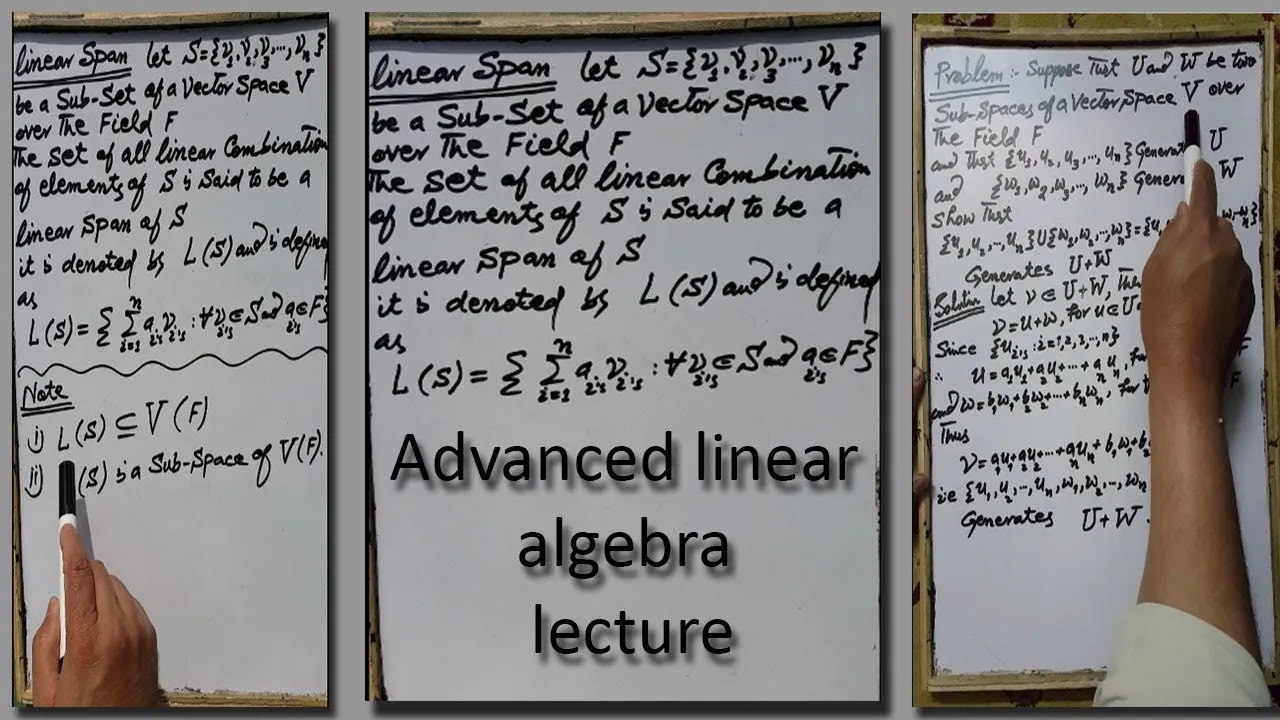 linear Span let S={v₁,v₂,v₃,...,vₙ}
be a Sub-Set of a Vector Space V
over The Field F
The set of all linear Combination
of elements of S is Said to be a
linear Span of S
it is denoted by L(S) and is defined
as
L(S) = { Σⁿᵢ₌₁ aᵢ'ₛ vᵢ'ₛ : ∀ vᵢ'ₛ ∈ S and aᵢ'ₛ ∈ F}
Note
i) L(S) ⊆ V(F)
ii) (S) is a Sub-Space of V(F).
linear Span let S={v₁,v₂,v₃,...,vₙ}
be a Sub-Set of a Vector Space V
over The Field F
The set of all linear Combination
of elements of S is Said to be a
linear Span of S
it is denoted by L(S) and is defined
as
L(S) = { Σⁿᵢ₌₁ aᵢ'ₛ vᵢ'ₛ : ∀ vᵢ'ₛ ∈ S and aᵢ'ₛ ∈ F}
Advanced linear
algebra
lecture
Problem:- Suppose That U and W be two
Sub-Spaces of a Vector Space V over
The Field F
and That {u₁,u₂,u₃,...,uₙ} U
and {w₁,w₂,w₃,...,wₙ} W
Show That
{u₁,u₂,...,uₙ}U{w₁,w₂,...,wₙ}={u₁,
Generates U+W
Solution Let v ∈ U+W, Then
v=u+w, for u∈U
Since {uᵢ'ₛ : i=1,2,3,...,n}
∴ u=a₁u₁+a₂u₂+...+aₙuₙ, F
and w=b₁w₁+b₂w₂+...+bₙwₙ, for F
Thus
v=a₁u₁+a₂u₂+...+aₙuₙ+b₁w₁+b₂
i.e {u₁,u₂,...,uₙ,w₁,w₂,...,wₙ
Generates U+W.